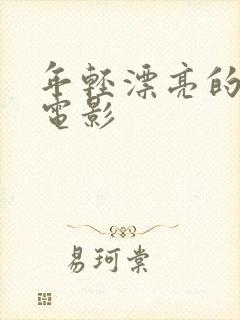 年轻漂亮的
电影
易珂棠